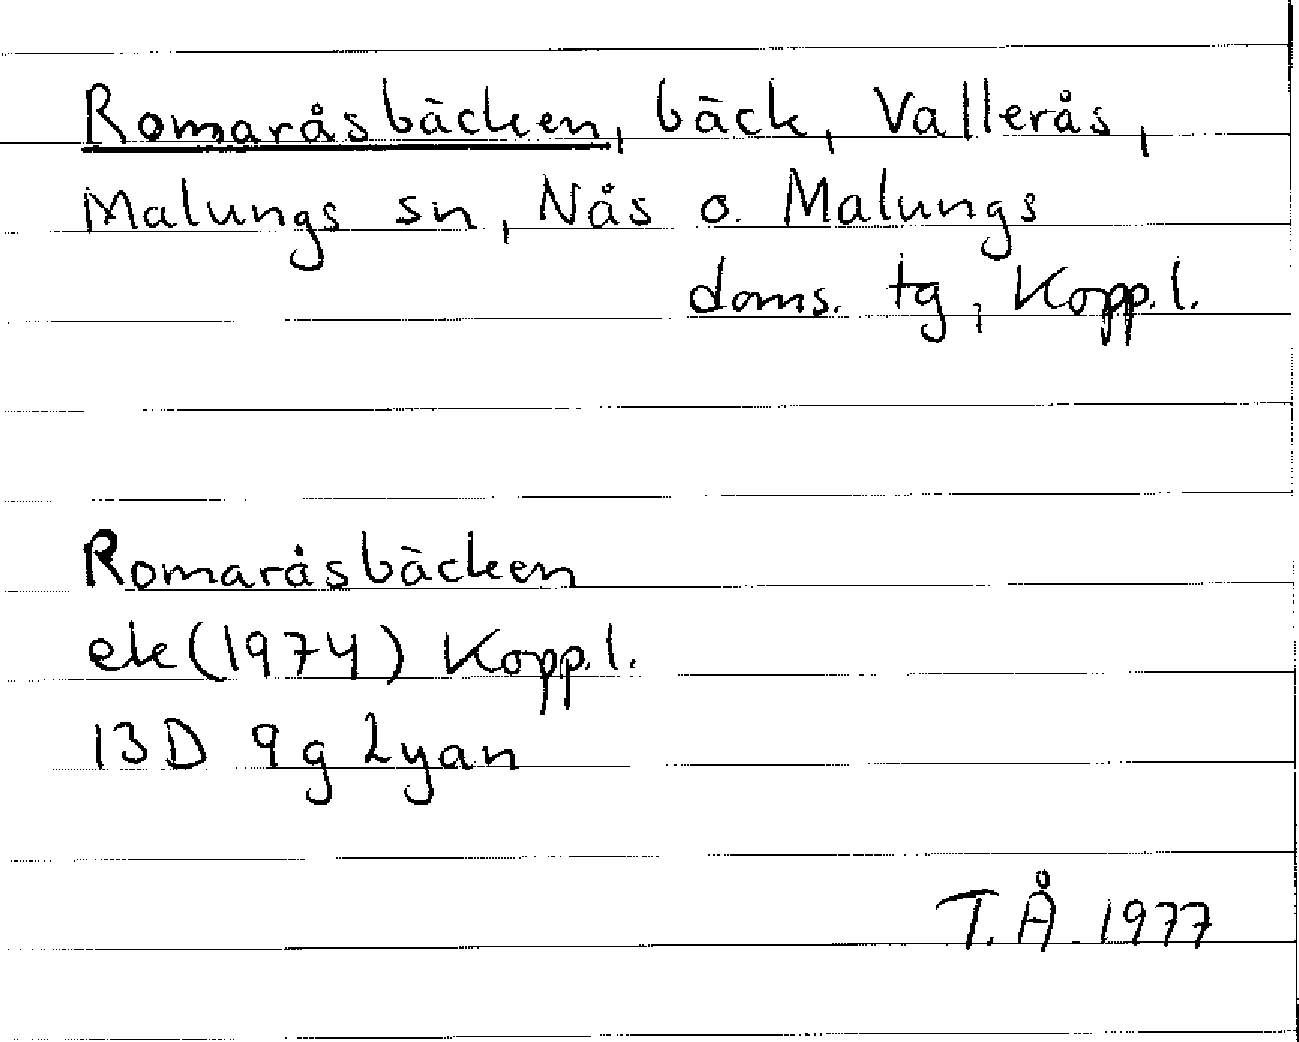 Romaråsbäcken, bäck, Vallerås,
Malungs sn, Nås o. Malungs
doms. tg, Kopp. l.
Romaråsbäcken
ek (1974) Kopp. l.
13D 9g Lyan
T. Å. 1977